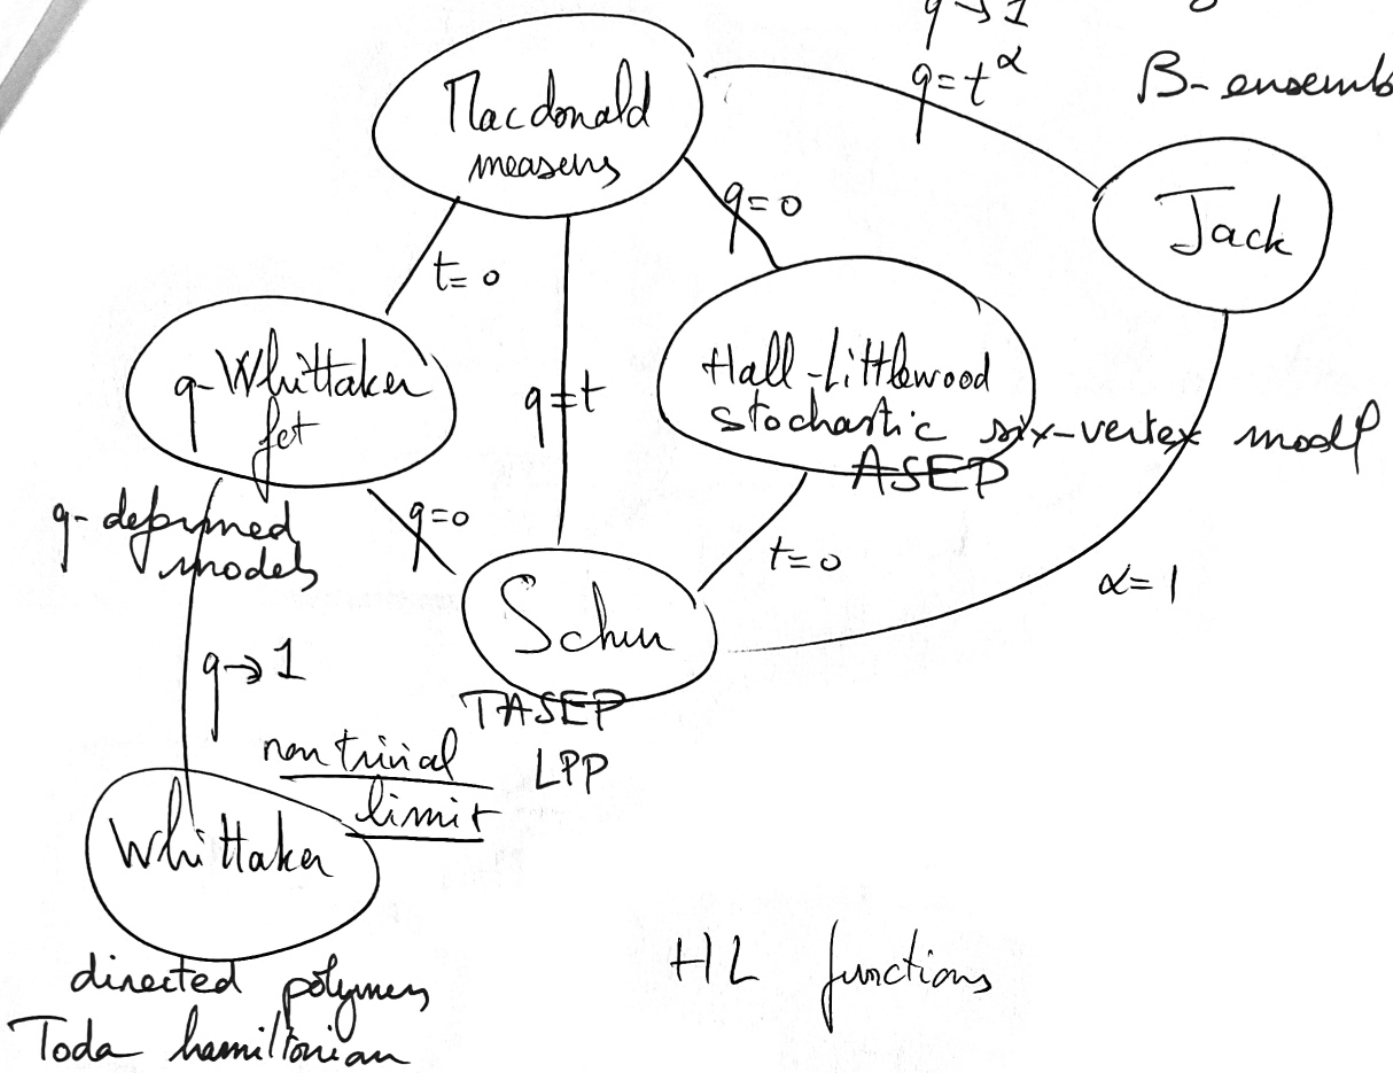 q→1
q=t^α
β-ensemb
Macdonald
measures
Jack
t=0
q=t
q=0
q-Whittaker
fct
Hall-Littlewood
stochastic six-vertex model
ASEP
q-deformed
models
q=0
t=0
α=1
Schur
TASEP
LPP
q→1
non trivial
limit
Whittaker
directed polymers
Toda hamiltonian
HL functions